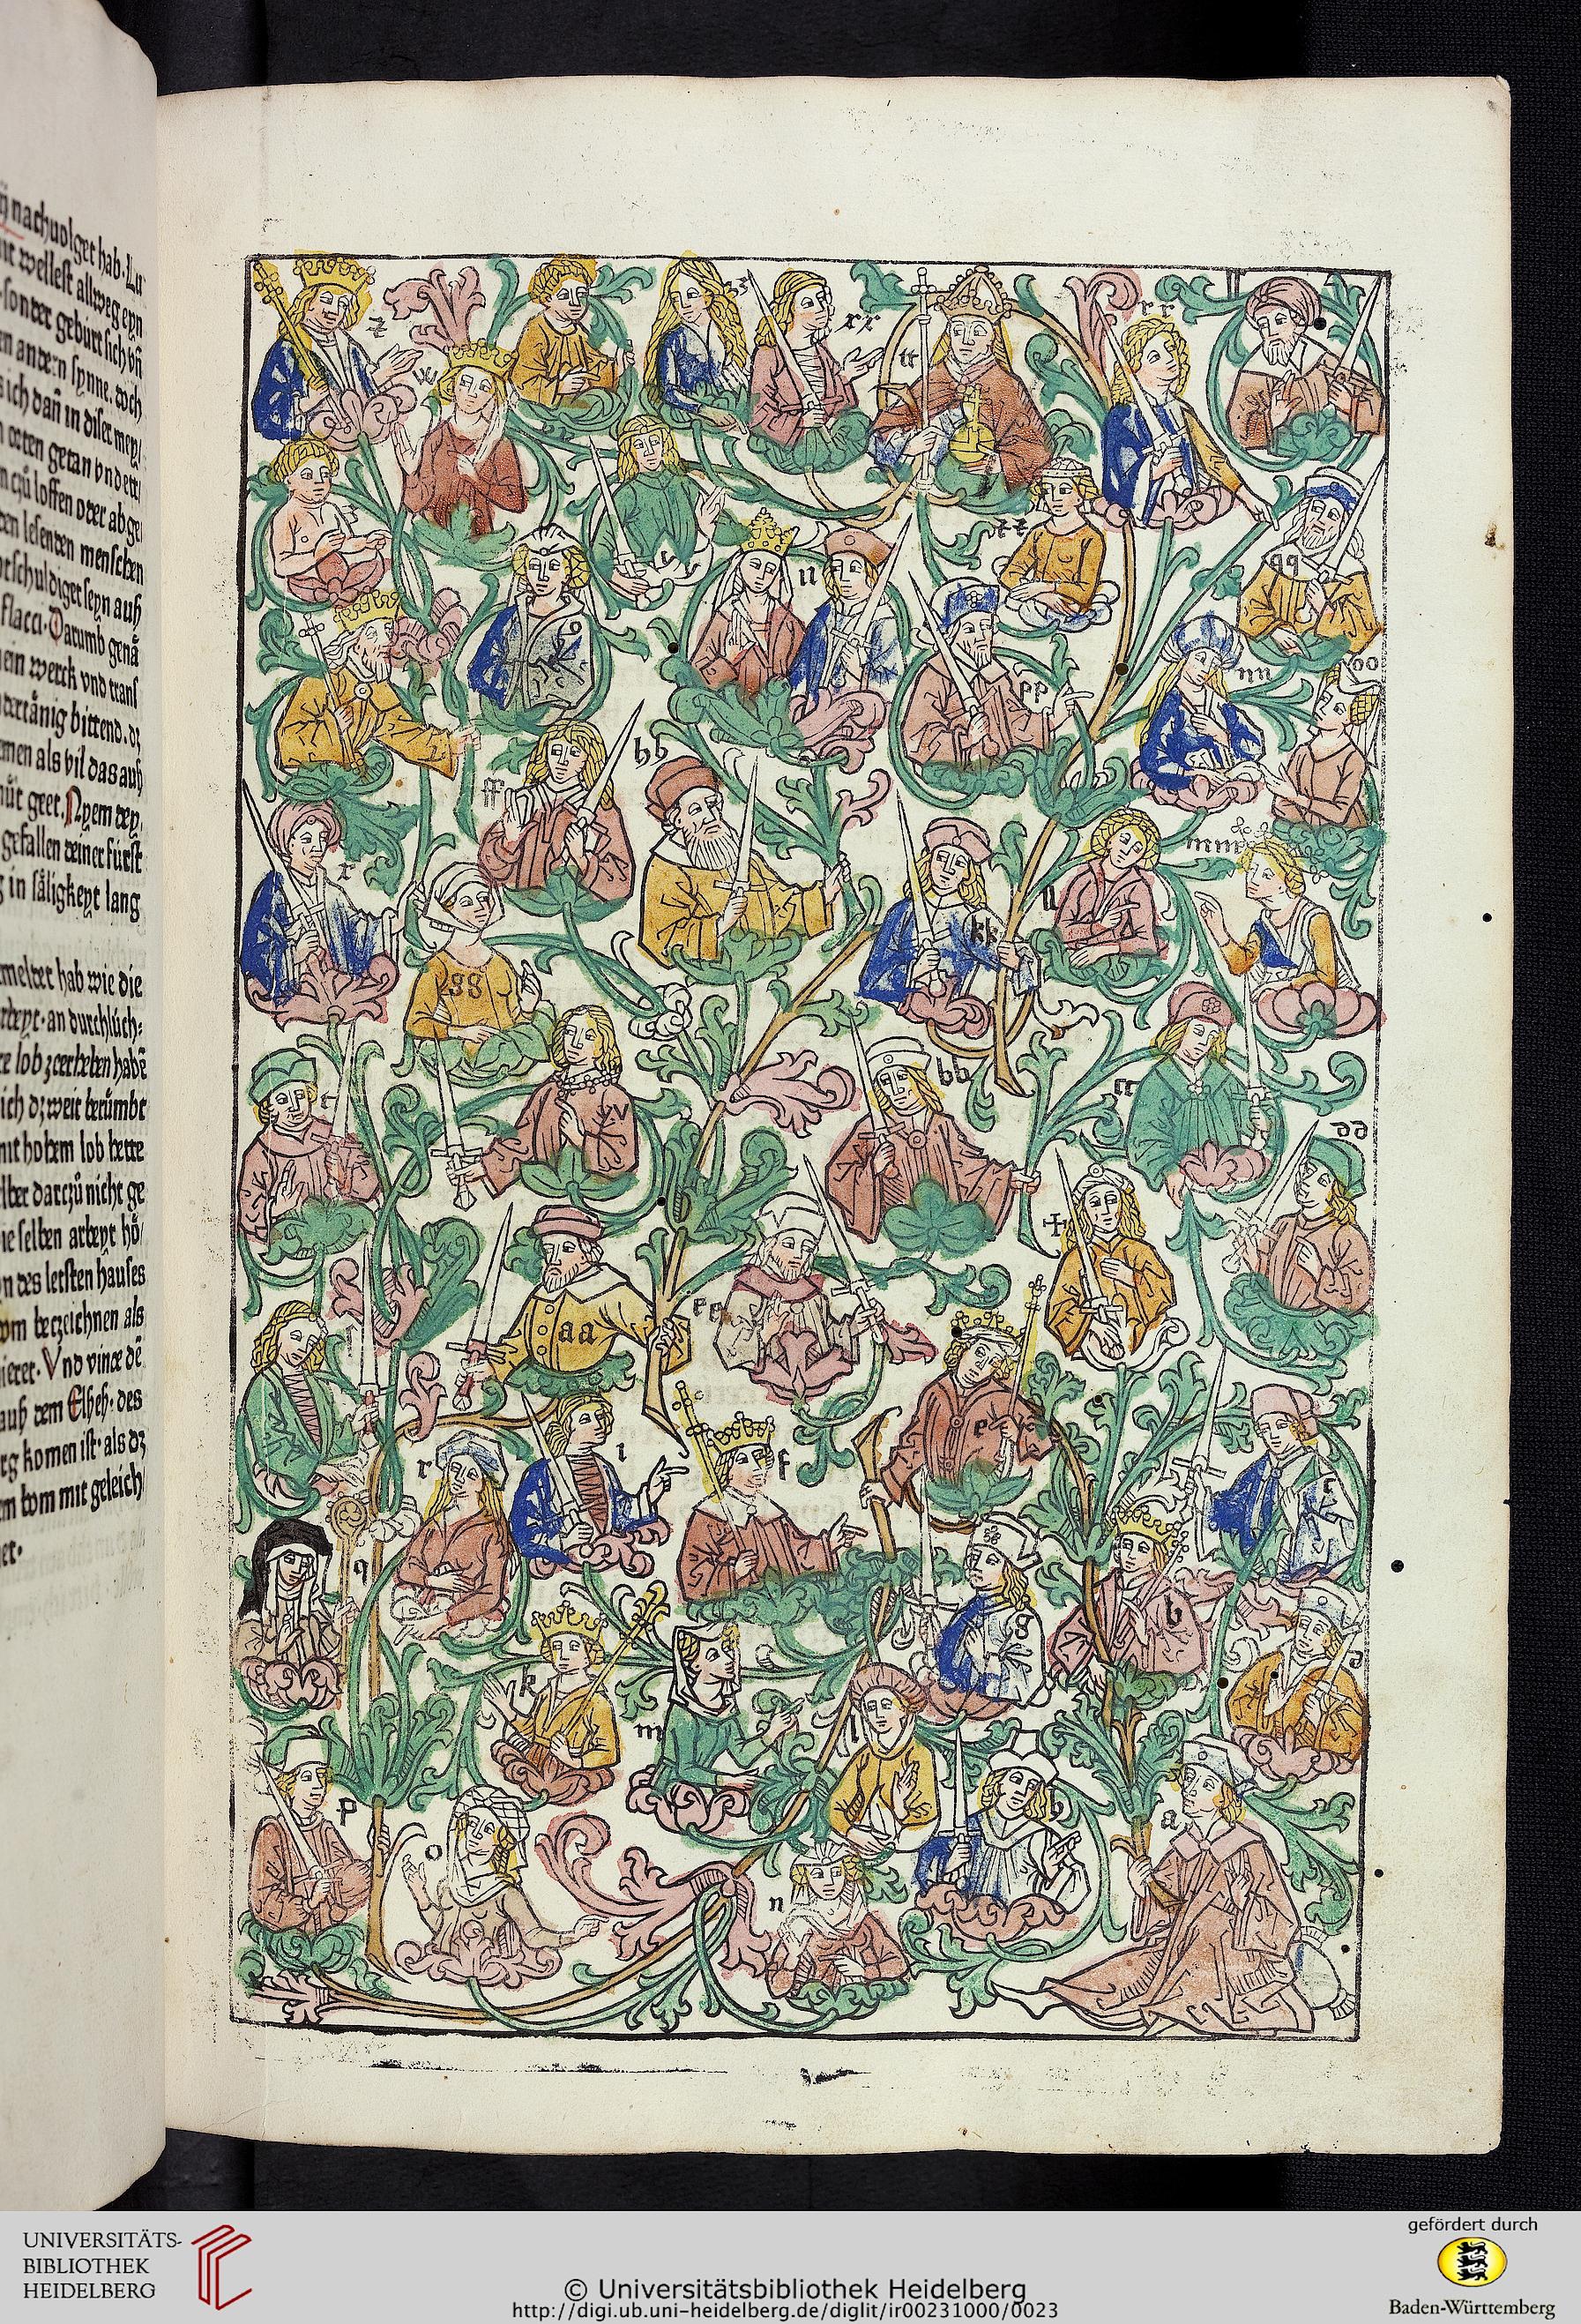 nachuolget hab.
wellest allweg eyn
sonder geburt sich
andern synne. doch
ich dañ in diser mey/
getan vnd ett/
czů loffen oder abge/
den lesenden menschen
entschuldiget seyn auß
flacci. Darumb genã
mein werck vnd trans/
vnertãnig bittend. dz
nemen als vil das auß
gůt geet. Nyem dey
gefallen deiner fürst
in sãligkeyt lang
gemeldet hab wie die
arbeyt. an durchlüch:
lob zcerheben habẽ
ich dz weit berümbt
mit hohem lob hette
selber darczů nicht ge
die selben arbeyt hö/
des letsten hauses
bezeichnen als
Vnd vince dẽ
auß dem Elheh. des
komen ist. als dz
kom mit geleich
z
w
3
xx
tt
rr
zz
qq
g
ii
pp
nn
oo
ff
hh
x
ll
mm
kk
gg
v
bb
cc
t
dd
aa
ee
r
i
f
e
c
q
k
g
b
d
m
l
p
o
n
h
a
UNIVERSITÄTS-
BIBLIOTHEK
HEIDELBERG
© Universitätsbibliothek Heidelberg
http://digi.ub.uni-heidelberg.de/diglit/ir00231000/0023
gefördert durch
Baden-Württemberg